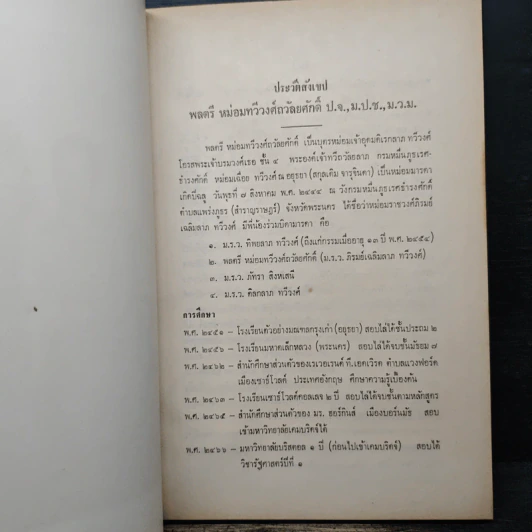 ประวัติสังเขป
พลตรี หม่อมทวีวงศ์ถวัลยศักดิ์ ป.จ.,ม.ป.ช.,ม.ว.ม.
พลตรี หม่อมทวีวงศ์ถวัลยศักดิ์ เป็นบุตรหม่อมเจ้าอุดมดิเรกลาภ ทวีวงศ์
โอรสพระเจ้าบรมวงศ์เธอ ชั้น ๔ พระองค์เจ้าทวีถวัลยลาภ กรมหมื่นภูธเรศ-
ธำรงศักดิ์ หม่อมเฉื่อย ทวีวงศ์ ณ อยุธยา (สกุลเดิม จารุจินดา) เป็นหม่อมมารดา
เกิดปีฉลู วันพุธที่ ๗ สิงหาคม พ.ศ. ๒๔๔๔ ณ วังกรมหมื่นภูธเรศธำรงศักดิ์
ตำบลแพร่งภูธร (สำราญราษฎร์) จังหวัดพระนคร ได้ชื่อว่าหม่อมราชวงศ์ภิรมย์
เฉลิมลาภ ทวีวงศ์ มีพี่น้องร่วมบิดามารดา คือ
๑. ม.ร.ว. ทิพยลาภ ทวีวงศ์ (ถึงแก่กรรมเมื่ออายุ ๑๓ ปี พ.ศ. ๒๔๕๔)
๒. พลตรี หม่อมทวีวงศ์ถวัลยศักดิ์ (ม.ร.ว. ภิรมย์เฉลิมลาภ ทวีวงศ์)
๓. ม.ร.ว. ภัทรา สิงหเสนี
๔. ม.ร.ว. ดิลกลาภ ทวีวงศ์
การศึกษา
พ.ศ. ๒๔๕๑ – โรงเรียนตัวอย่างมณฑลกรุงเก่า (อยุธยา) สอบไล่ได้ชั้นประถม ๒
พ.ศ. ๒๔๕๖ – โรงเรียนมหาดเล็กหลวง (พระนคร) สอบไล่ได้จบชั้นมัธยม ๗
พ.ศ. ๒๔๖๒ – สำนักศึกษาส่วนตัวของเรเวอเรนด์ ที.เอคเวิรค ตำบลแวงฟอร์ด
เมืองเซาธ์โวลด์ ประเทศอังกฤษ ศึกษาความรู้เบื้องต้น
พ.ศ. ๒๔๖๓ – โรงเรียนเซาธ์โวลด์คอลเลจ ๒ ปี สอบไล่ได้จบชั้นตามหลักสูตร
พ.ศ. ๒๔๖๕ – สำนักศึกษาส่วนตัวของ มร. ฮอร์กินส์ เมืองบอร์นมัธ สอบ
เข้ามหาวิทยาลัยเคมบริดจ์ได้
พ.ศ. ๒๔๖๖ – มหาวิทยาลัยบริสตอล ๑ ปี (ก่อนไปเข้าเคมบริดจ์) สอบได้
วิชารัฐศาสตร์ปีที่ ๑